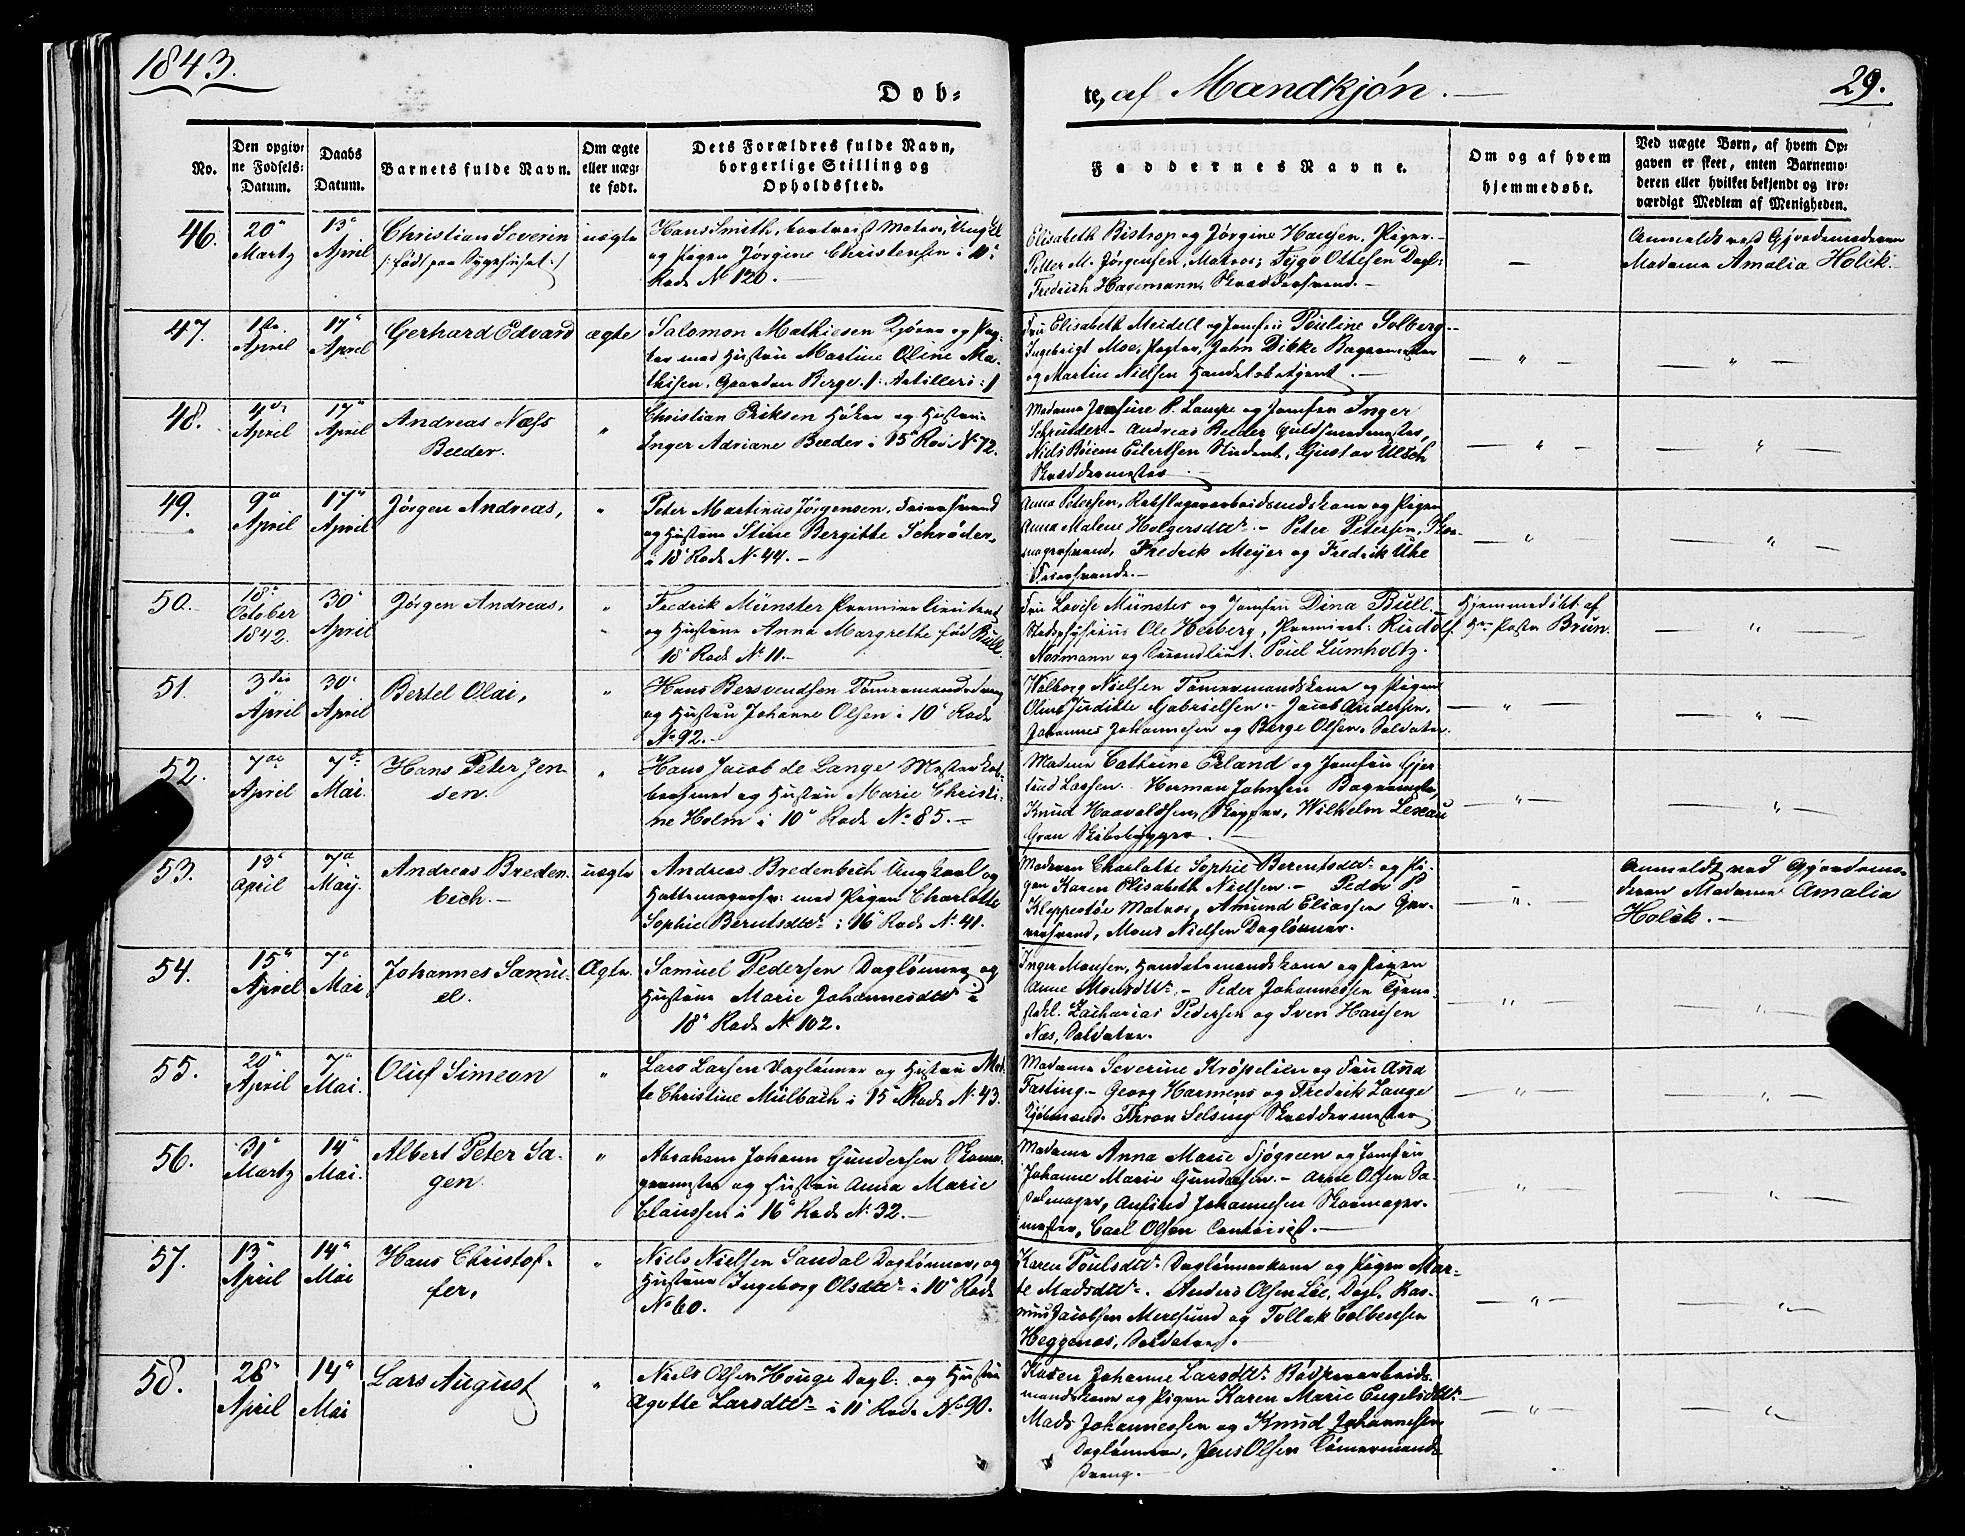 1843.
Døb-
te, af Mandkjøn.
29.
No.
Den opgiv-
ne Fødsels-
Datum.
Daabs
Datum.
Barnets fulde Navn.
Om ægte
eller uæg-
te født.
Dets Forældres fulde Navn,
borgerlige Stilling og
Opholdssted.
Faddernes Navne.
Om og af hvem
hjemmedøbt.
Ved uægte Børn, af hvem Op-
gaven er skeet, enten Barnemo-
deren eller hvilket bekjendt og tro-
værdigt Medlem af Menigheden.
46.
20de
Martz
13de
April
Christian Severin
/: født paa Sygehuset :/
uægte
Hans Smith, Matros, Ungkl
og Pigen Jørgine Christensen i 11te
Rode No 120.
Elisabeth Bistrop og Jørgine Hansen, Piger.
Petter M. Jørgensen, Matros, Tygo Ottesen Dagl:
Fredrich Hagemann, Skræddersvend.
Anmeldt ved Gjordemoderen
Madame Amalia Holck.
47.
1ste
April
17de
April
Gerhard Edvard
ægte
Salomon Mathiesen og
med Hustru Martine Oline Ma-
thisen, Gaarden Berge /: Artilleri :/
Fru Elisabeth Meidell og Jomfru Pouline Solberg
Ingebrigt Moe, John Dikke Bagermester
og Martin Nielsen Handelsbetjent.
48.
4de
April
17de
April
Andreas Næss
Beeder.
Christian Eriksen Høker og Hustru
Inger Adriane Beeder i 15de Rode No 72.
Madame Josefine P. Lampe og Jomfru Inger
Schreuder - Andreas Beeder Guldsmedmester,
Niels Eilertsen Student, Gustav Ulsch
Skræddermester
49.
9de
April
17de
April
Jørgen Andreas,
Peter Martinus Jørgensen,
og Hustru Stine Bergitte Schrøder,
i 18de Rode No 44.
Anna Petersen, og Pigen
Anna Malene Holgersdtr - Peter Petersen, Sko-
magersvend, Fredrik Meyer og Fredrik Uhe
50.
18de
October
1842.
30te
April
Jørgen Andreas,
Fredrik Münster Premierlieutenant
og Hustru Anna Margrethe født Bull.
18de Rode No 11.
Fru Lovise Münster og Jomfru Dina Bull.
Stadsphysicus Ole Herberg, Premierl: Rudolf
Normann og Secondlieut: Poul Lumholtz.
Hjemmedøbt af
Hr Pastor Brun.
51.
3die
April
30te
April
Bertel Olai,
Hans Bersvendsen Tømermandsdreng
og Hustru Johanne Olsen i 10de Rode
No 92.
Walborg Nielsen Tømermandskone og Pigen
Oline Jurditte Gabrielsen - Jacob Andersen,
Johannes Johannesen og Berge Olsen, Soldater.
52.
7de
April
7de
Mai.
Hans Peter Jen-
sen.
Hans Jacob de Lange Mester
og Hustru Marie Christi-
ne Holm i 10de Rode No 85.
Madme Cathrine Erland og Jomfru Gjer-
trud Larsen. Herman Johnsen Bagermester,
Knud Haavaldsen, Skipper, Wilhelm
Gran Skibsbygger
53.
13de
April
7de
May.
Andreas Breden-
bech.
uægte
Andreas Bredenbech Ungkarl og
Hattemagersv: med Pigen Charlotte
Sophie Berntsdtr i 16de Rode No 41.
Moderen Charlotte Sophie Berentsdtr og Pi-
gen Karen Elisabeth Nielsen - Peder P
Kleppestøe Matros, Amund Eliassen Gar-
versvend, Mons Nielsen Dagløner.
Anmeldt ved Gjordemo-
deren Madame Amalia
Holck.
54.
15de
April
7de
Mai
Johannes Samu-
el.
Ægte.
Samuel Pedersen Dagløner og
Hustru Marie Johannesdtr i
18de Rode No 102.
Inger Monsen, Handelsmandskone og Pigen
Anne Monsdtr - Peder Johannessen Tjene-
stekl. Zacharias Pedersen og Sven Hansen
Næs, Soldater.
55.
20de
April
7de
Mai.
Oluf Simeon
Lars Larsen Dagløner og Hustru Mar-
te Christine Mülbach i 15de Rode No 43.
Madame Severine Krøpelien og Fru Ana
Fasting - Georg Harmens og Fredrik Lange
Kjøbmænd. Thron Selsing Skræddermester
56.
31te
Martz
14de
Mai.
Albert Peter Sa-
gen.
Abraham Johann Gundersen Skoma-
germester og Hustru Anna Marie
Claussen i 16de Rode No 32.
Madame Anna Marie Sjøgreen og Jomfru
Johanne Marie Gundersen - Arne Olsen Sa-
delmager, Anfind Johannessen Skomager-
mester, Carl Olsen Contoirist.
57.
13de
April
14de
Mai
Hans Christof-
fer,
Niels Nielsen Sandal Dagløner, og
Hustru Ingeborg Olsdtr i 10de Rode
No 60.
Karen Poulsdtr Daglønerkone og Pigen Mar-
te Madsdtr. Anders Olsen Lie, Dagl. Ras-
mus Jacobsen Meresund og Tollak Colbensen
Heggenæs, Soldater.
58.
28de
April
14de
Mai
Lars August
Niels Olsen Houge Dagl: og Hustru
Agotte Larsdtr i 11te Rode No 90.
Karen Johanne Larsdtr Bødkerarbeids-
mandskone og Pigen Karen Marie Engelsdtr
Mads Johannessen og Knud Johannesen
Dagløner, Jens Olsen Tømermands
dreng.